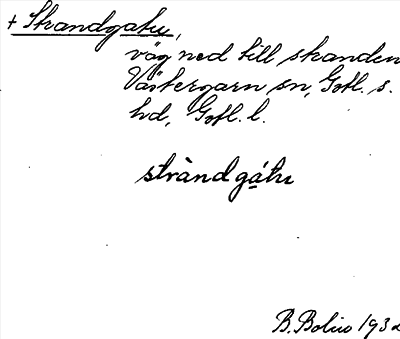 + Strandgatu,
väg ned till stranden
Västergarn sn, Gotl. s.
hd, Gotl. l.
stràndgátu
B. Bolin 1932